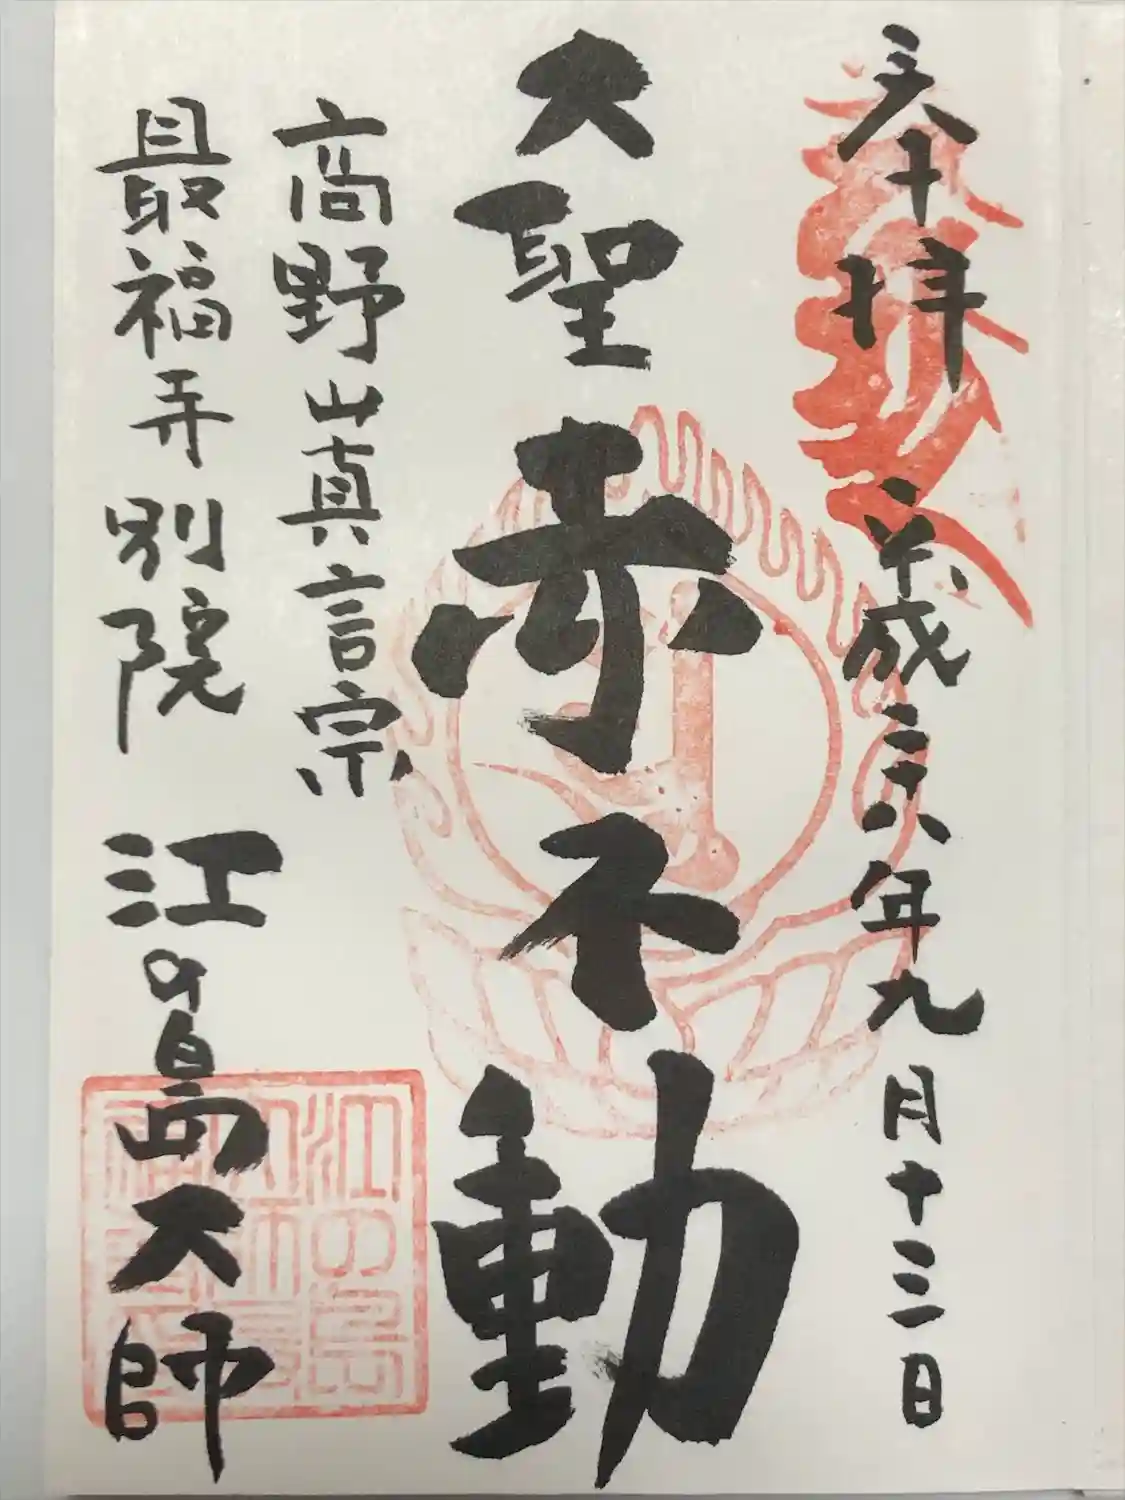 奉拝 平成二十八年九月十三日
大聖赤不動
高野山真言宗
最福寺別院 江の島大師
江の島